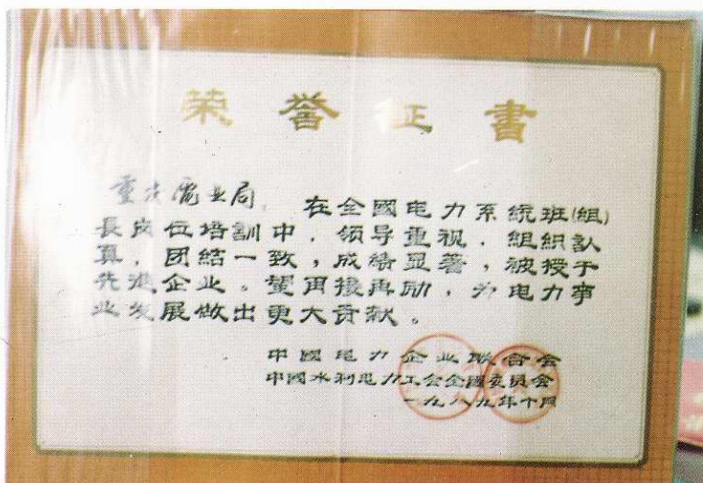 荣誉证書
重庆電业局 在全國电力系统班(組)
長岗位培訓中，领导重视，組織认
真，团結一致，成绩显著，被授于
先進企业。望再接再励，为电力事
业发展做出更大贡献。
中國电力企业联合会
中國水利电力工会全國委员会
一九八九年十月